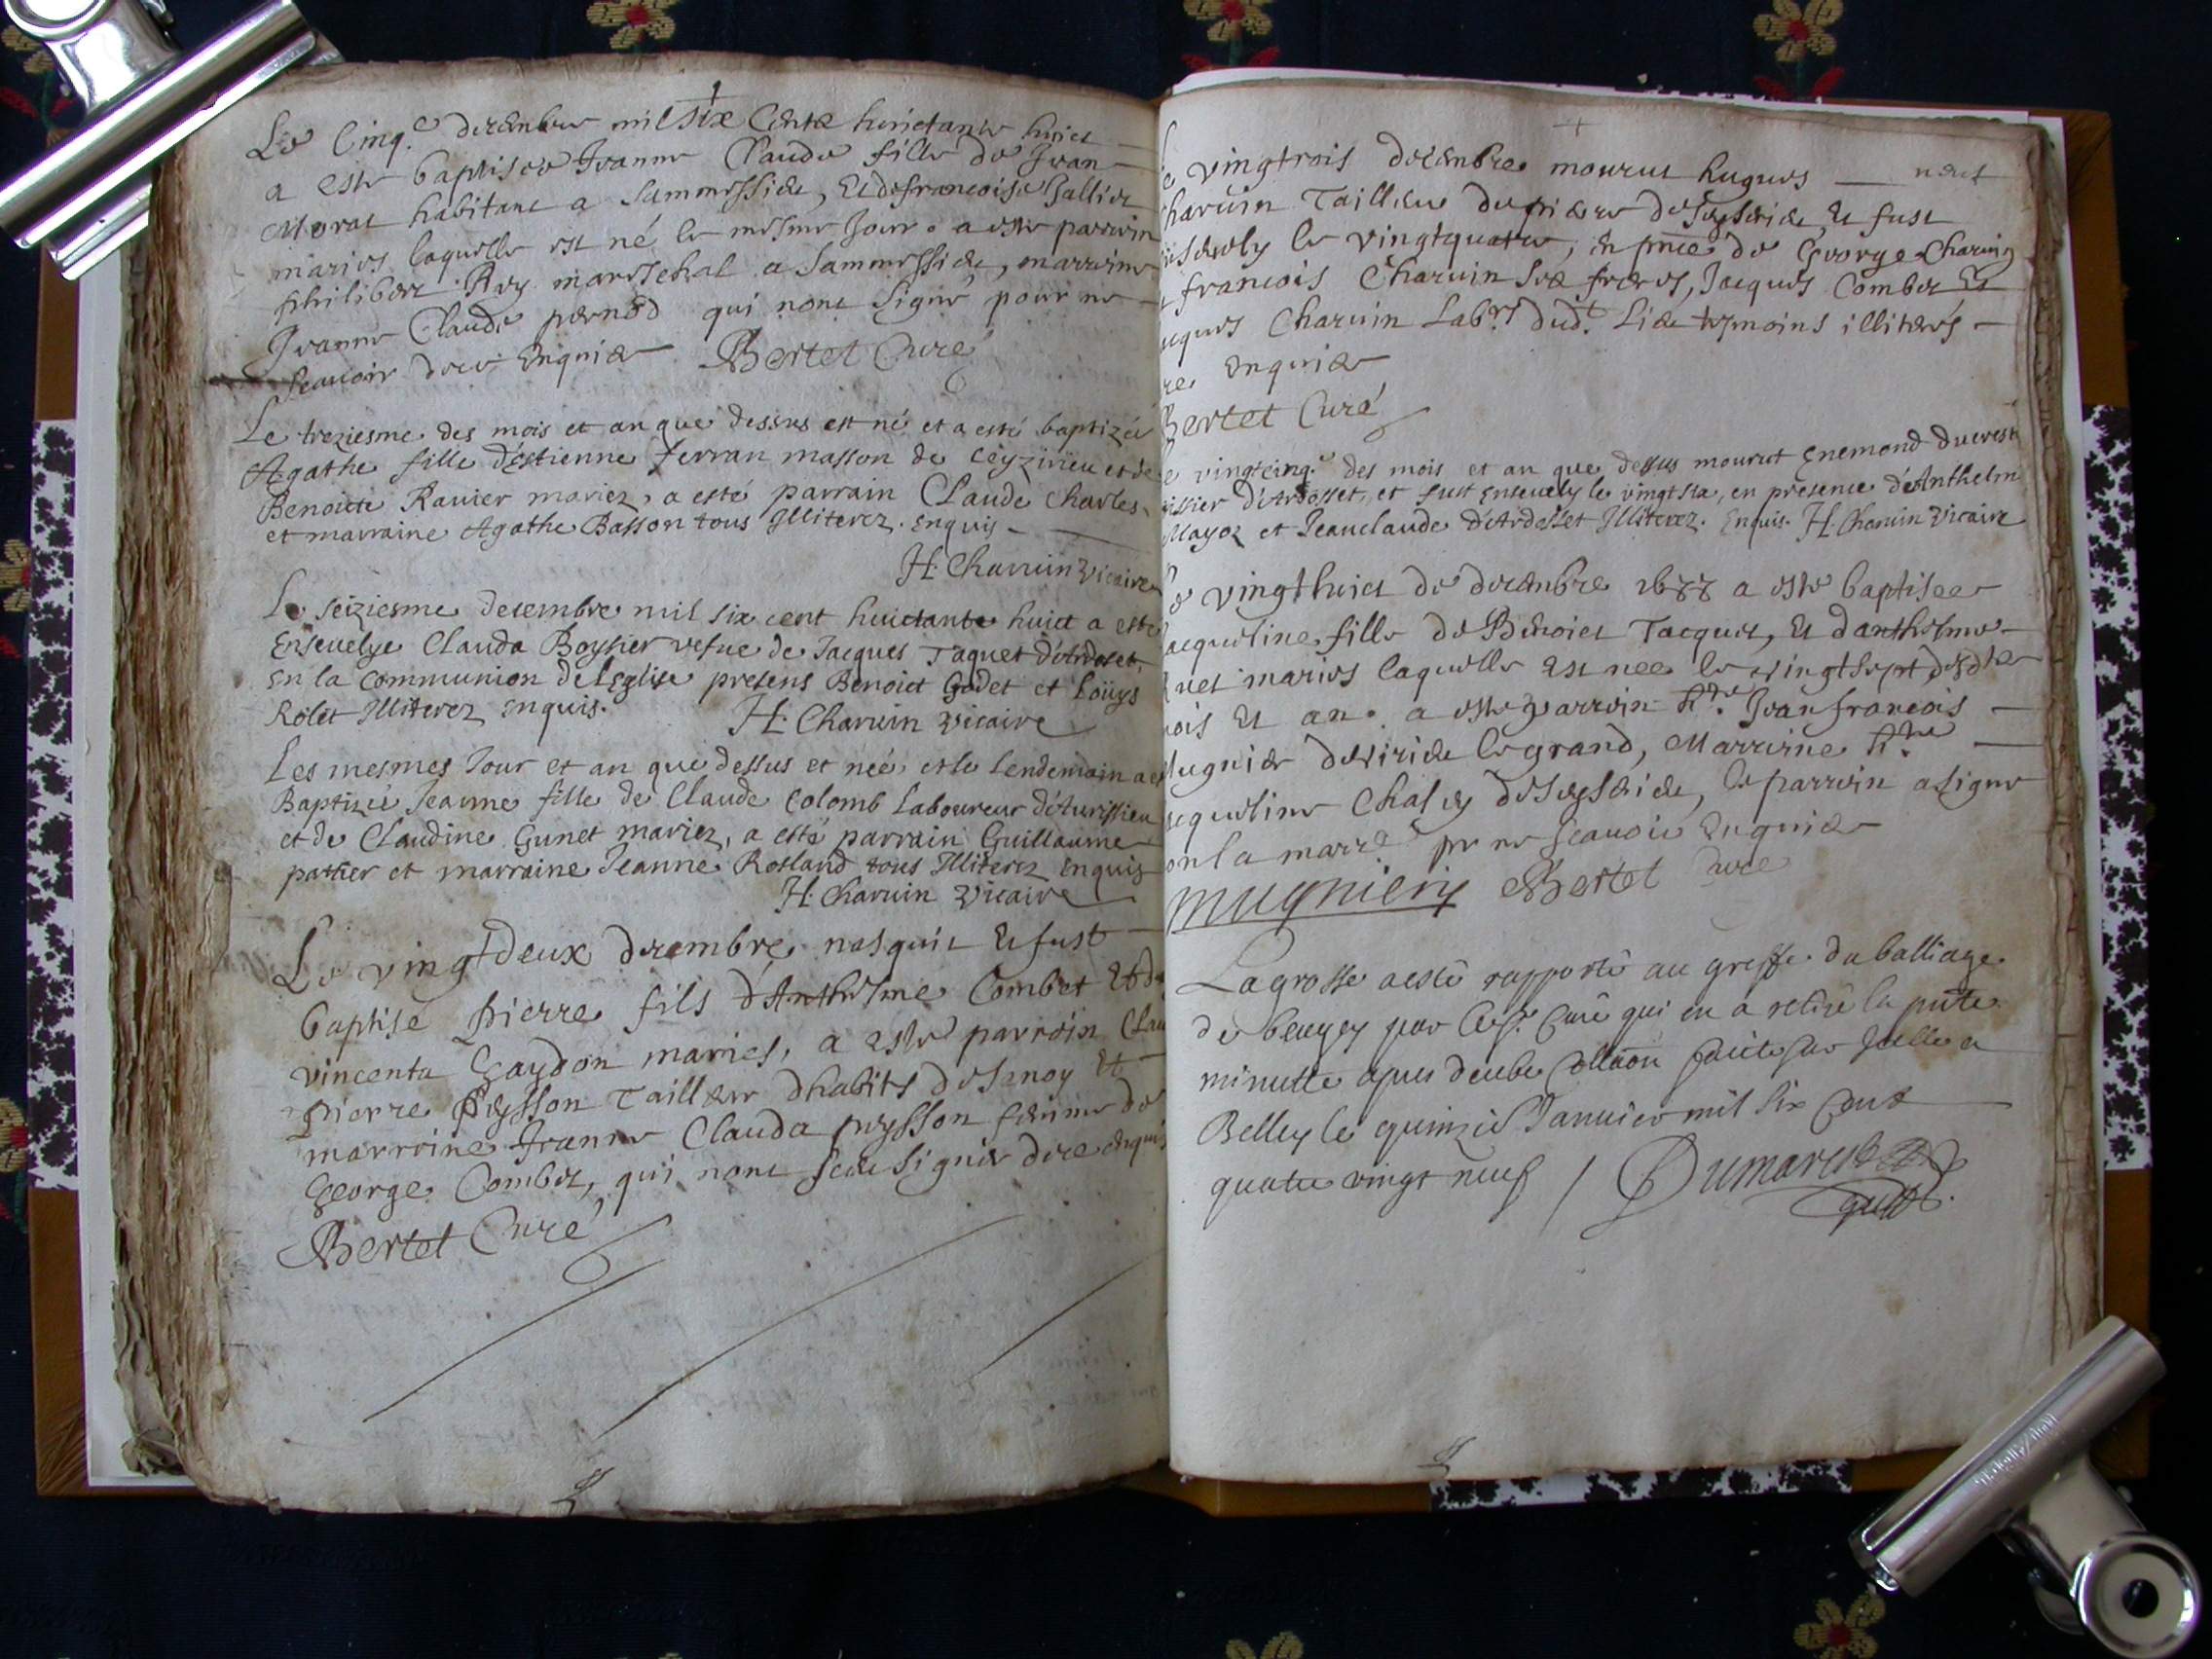 Le Cinq.e decembre mil six Cents huictante huict
a este baptisée Jeanne Claude fille de Jean
Morat habitant a Sammessieu, Et de francoise Gallier
maries laquelle est né le mesme Jour. a este parroin
philibert Rey mareschal a Sammessieu, marroine
Jeanne Claude pernod qui nont signé pour ne
scauoir dece Enquier Bertet Curé
Le treziesme des mois et an que dessus est né et a esté baptizée
Agathe fille d'Estienne ferran masson de Ceyzirieu et de
Benoite Rauier mariez, a esté parrain Claude Charles
et marraine Agathe Basson tous Illiterez. enquis
H. Charuin Vicaire
Le seiziesme decembre mil six cent huictante huict a esté
Enseuelye Clauda Boysier vefue de Jacques Jaquet d'Ardosset,
En la communion de l'Eglise presens Benoict Godet et Loüys
Rolet Illiterez enquis. H. Charuin Vicaire
Les mesmes Jour et an que dessus et néé, et le Lendemain a
Baptizée Jeanne fille de Claude Colomb Laboureur d'Aurissieu
et de Claudine Gunet mariez, a esté parrain Guillaume
pathier et marraine Jeanne Rolland tous Illiterez Enquis
H. Charuin Vicaire
Le vingt deux decembre nasquit Et fust
baptisé Pierre fils d'Anthelme Combet Et de
vincenta Gaydon maries, a este parroin Clau
Pierre Peysson Tailleur dhabits de Senoy Et
marroine Jeanne Clauda peysson femme de
George Combet, qui nont sceu signer dece enquis
Bertet Curé
vingtrois decembre mourut hugues
haruin Tailleur de pierre de Et fust
le vingtquatre, En pnce de George Charuin
francois Charuin ses freres, Jacques Combet Et
Charuin Labrs dud.t Lieu tesmoins illiterés
Enquier
Bertet Curé
vingtcinq.e des mois et an que dessus mourut Enemond Ducrest
d'Ardosset, et fust enseuely le vingt six, en presence d'Anthelm
Mayoz et Jeanclaude d'Ardosset Illiterez. Enquis. H. Charuin Vicaire
vingthuict de decembre 1688 a este baptisee
acqueline fille de Benoict Jacquet, Et danthelme
maries laquelle est nee le vingtsept desdts
ois Et an. a este parroin Jean francois
ugnier de virieu le grand, Marroine
queline Chaley de , le parroin a signe
la marre pr ne scauoir Enquier
Mugniery Bertet Curé
La grosse a esté rapporté au greffe du balliage
de beugey par curé qui en a retiré la pnte
minutte apres deube collaon faicte sur Jcelle a
Belley le quinzie Januier mil six cent
quatre vingt neuf / Dumarest